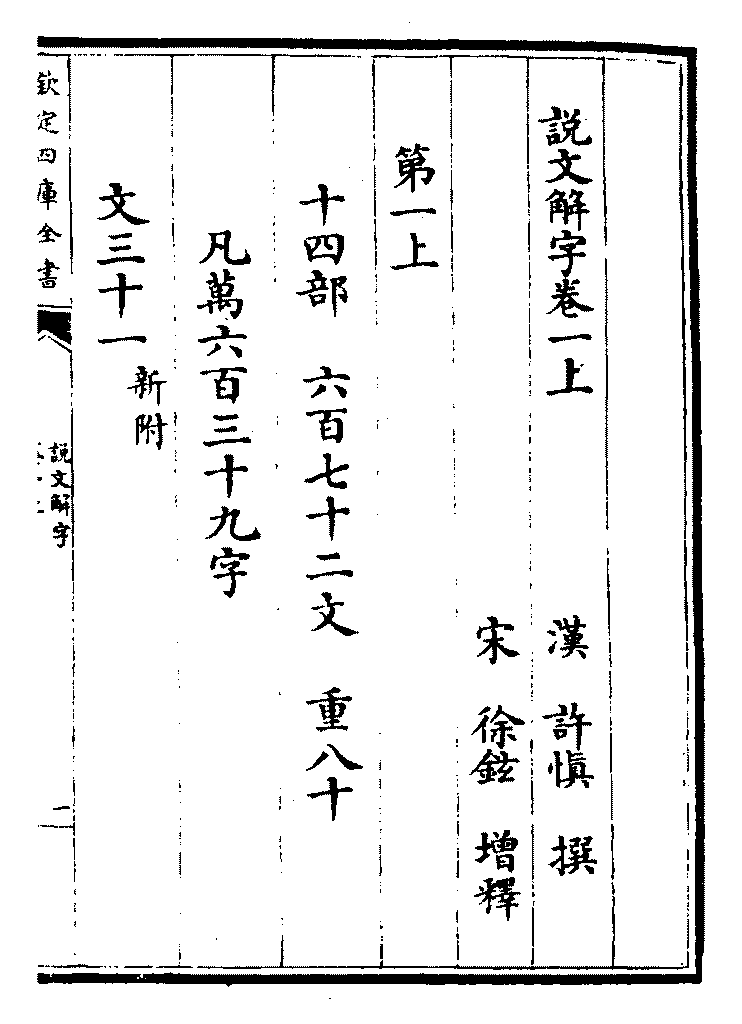 說文解字卷一上
漢 許慎 撰
宋 徐鉉 增釋
第一上
十四部 六百七十二文 重八十
凡萬六百三十九字
文三十一 新附
欽定四庫全書
説文解字
一